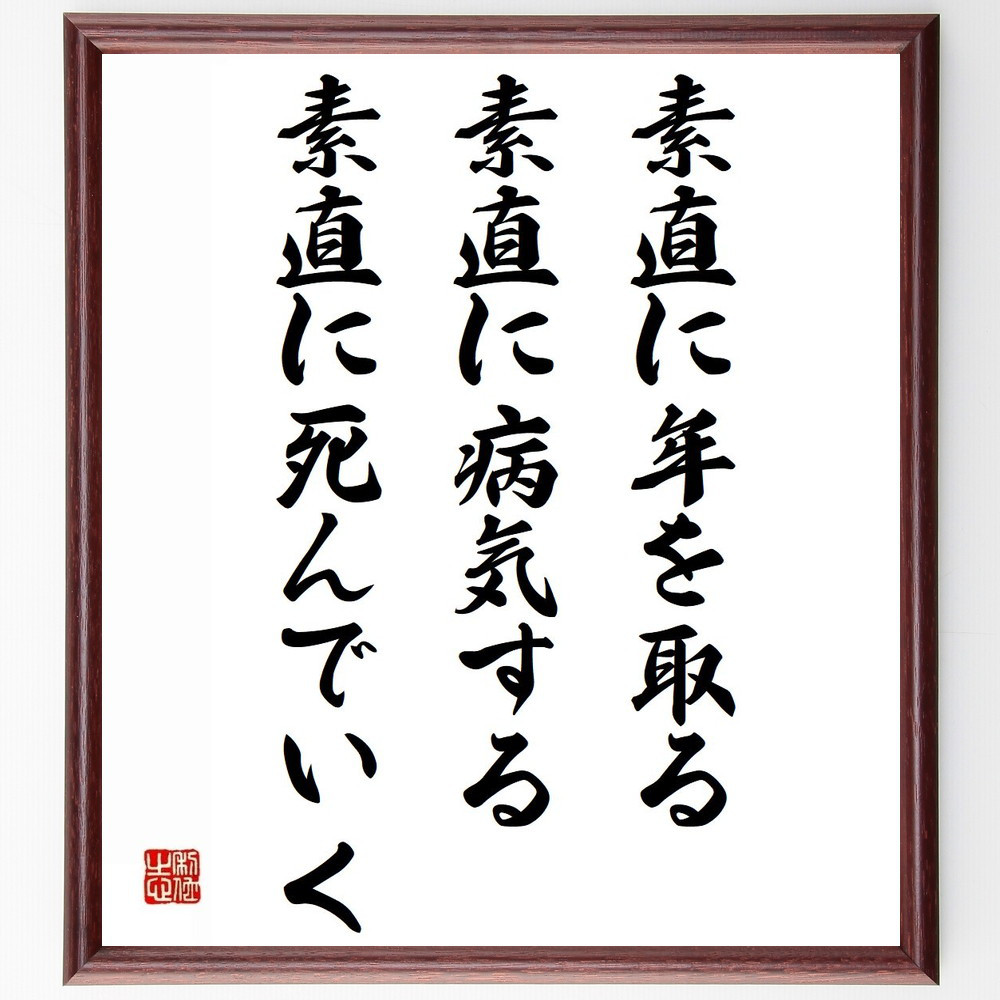 素直に年を取る
素直に病気する
素直に死んでいく